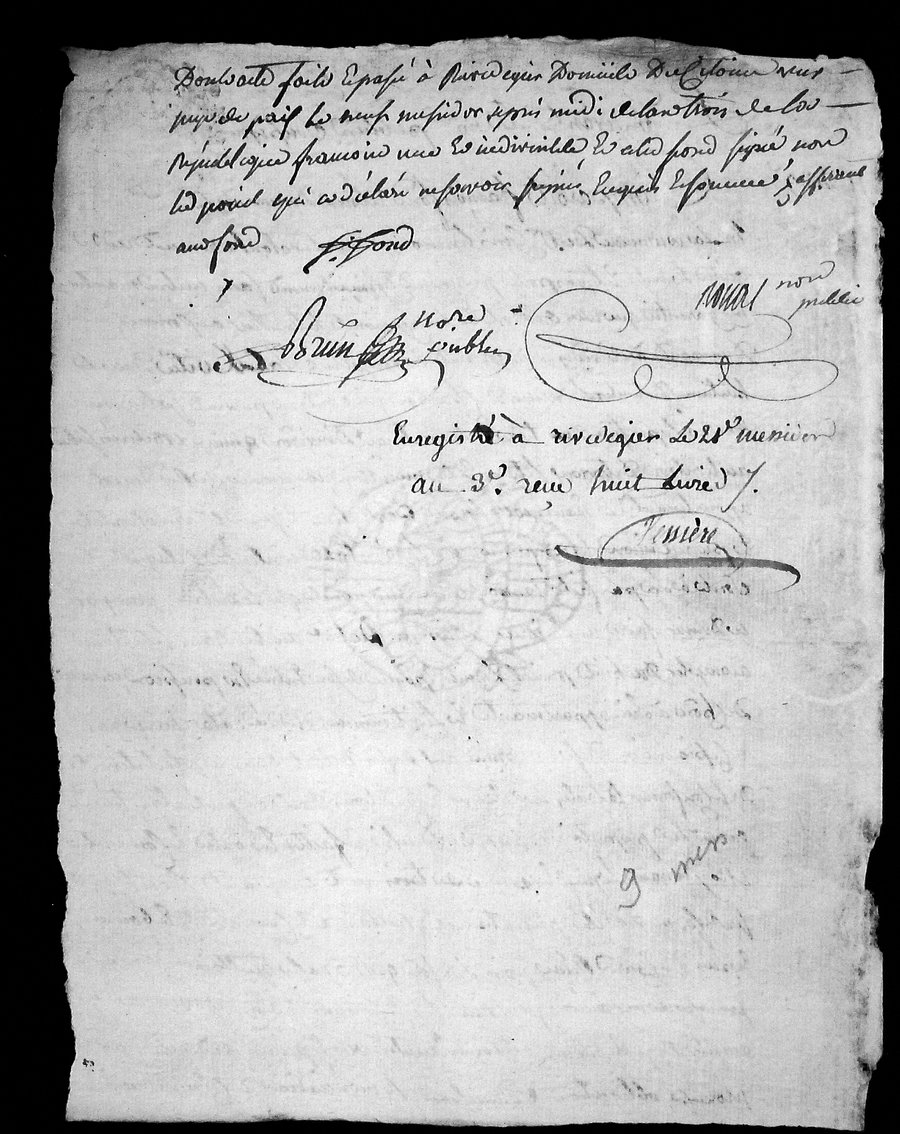 Dont acte fait et passé à Rivedegier Domicile Du Citoien
juge de paix le neuf messidor après midi de lan trois de la
République francoise une et indivisible et a led fond signé non
led qui a déclaré ne savoir signer Enquis et sommé
aud fond fond
nore public
Brun nore public
Enregistré à rivedegier Le 28e messidor
an 3e. reçu huit Livres
Tessière
9 mess